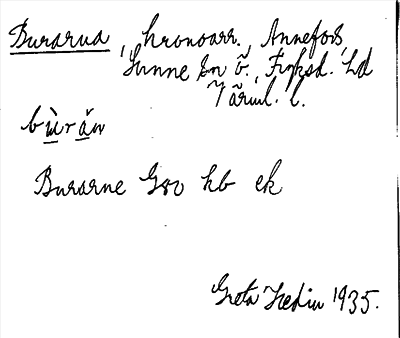 Burarua, kronoarr., Annefors,
Sunne sn ö., Fryksd. hd
Värml. l.
bùrăn
Burarne G80 kb ek
Greta Hedin 1935.